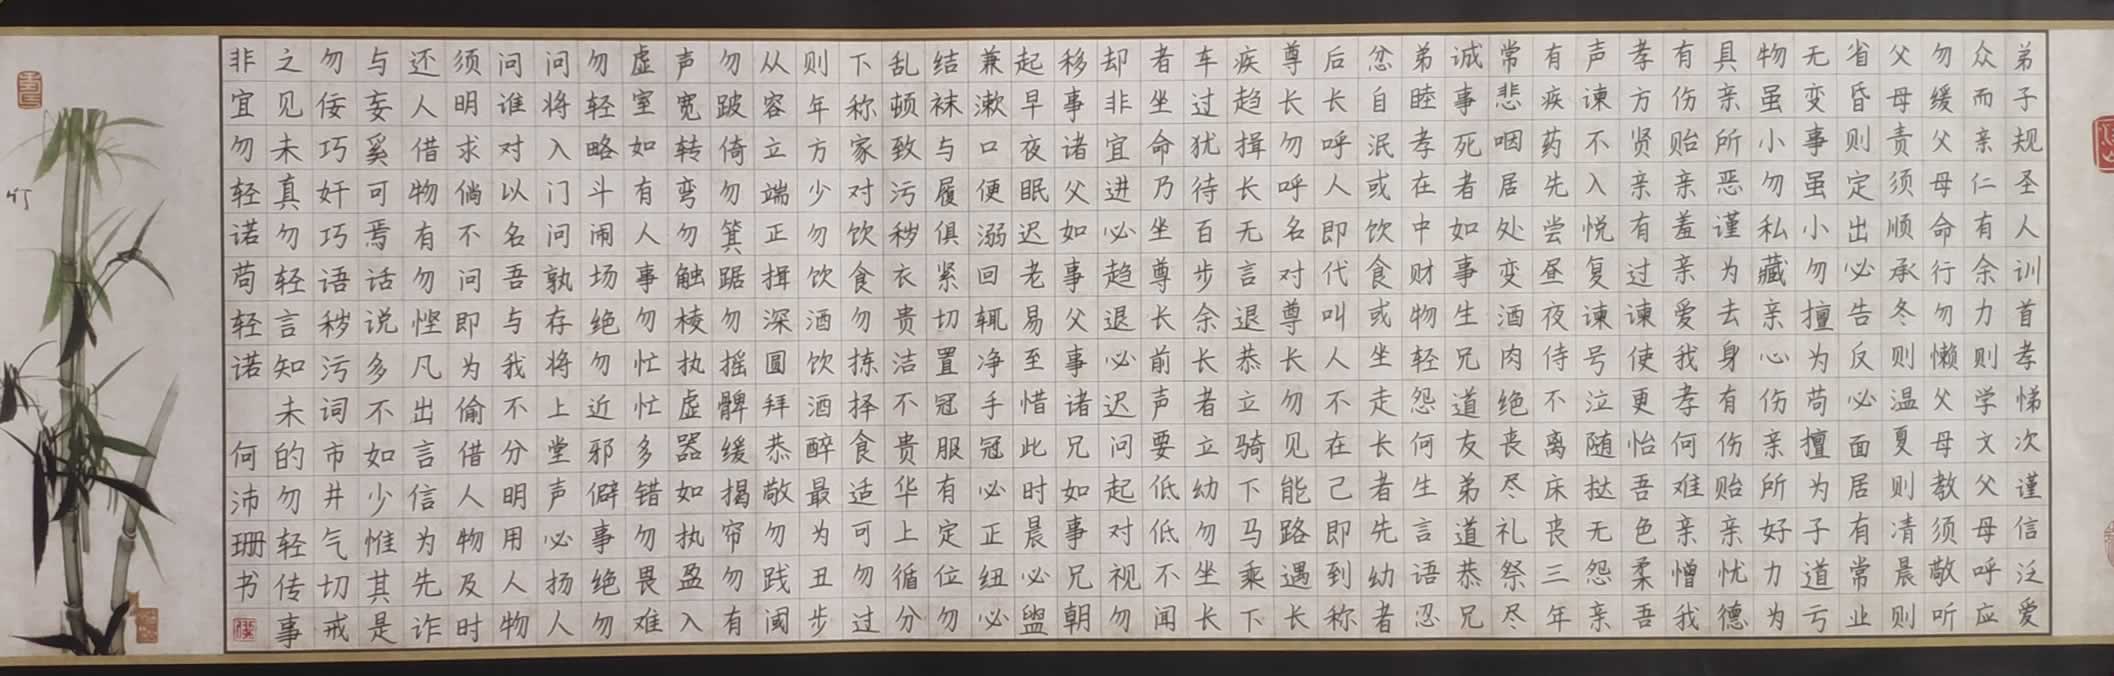 弟子规圣人训首孝悌次谨信泛爱
众而亲仁有余力则学文父母呼应
勿缓父母命行勿懒父母教须敬听
父母责须顺承冬则温夏则清晨则
省昏则定出必告反必面居有常业
无变事虽小勿擅为苟擅为子道亏
物虽小勿私藏亲心伤亲所好力为
具亲所恶谨为去身有伤贻亲忧德
有伤贻亲羞亲爱我孝何难亲憎我
孝方贤亲有过谏使更怡吾色柔吾
声谏不入悦复谏号泣随挞无怨亲
有疾药先尝昼夜侍不离床丧三年
常悲咽居处变酒肉绝丧尽礼祭尽
诚事死者如事生兄道友弟道恭兄
弟睦孝在中财物轻怨何生言语忍
忿自泯或饮食或坐走长者先幼者
后长呼人即代叫人不在己即到称
尊长勿呼名对尊长勿见能路遇长
疾趋揖长无言退恭立骑下马乘下
车过犹待百步余长者立幼勿坐长
者坐命乃坐尊长前声要低低不闻
却非宜进必趋退必迟问起对视勿
移事诸父如事父事诸兄如事兄朝
起早夜眠迟老易至惜此时晨必盥
兼漱口便溺回辄净手冠必正纽必
结袜与履俱紧切置冠服有定位勿
乱顿致污秽衣贵洁不贵华上循分
下称家对饮食勿拣择食适可勿过
则年方少勿饮酒饮酒醉最为丑步
从容立端正揖深圆拜恭敬勿践阈
勿跛倚勿箕踞勿摇髀缓揭帘勿有
声宽转弯勿触棱执虚器如执盈入
虚室如有人事勿忙忙多错勿畏难
勿轻略斗闹场绝勿近邪僻事绝勿
问将入门问孰存将上堂声必扬人
问谁对以名吾与我不分明用人物
须明求倘不问即为偷借人物及时
还人借物有勿悭凡出言信为先诈
与妄奚可焉话说多不如少惟其是
勿佞巧奸巧语秽污词市井气切戒
之见未真勿轻言知未的勿轻传事
非宜勿轻诺苟轻诺 何沛珊书
竹